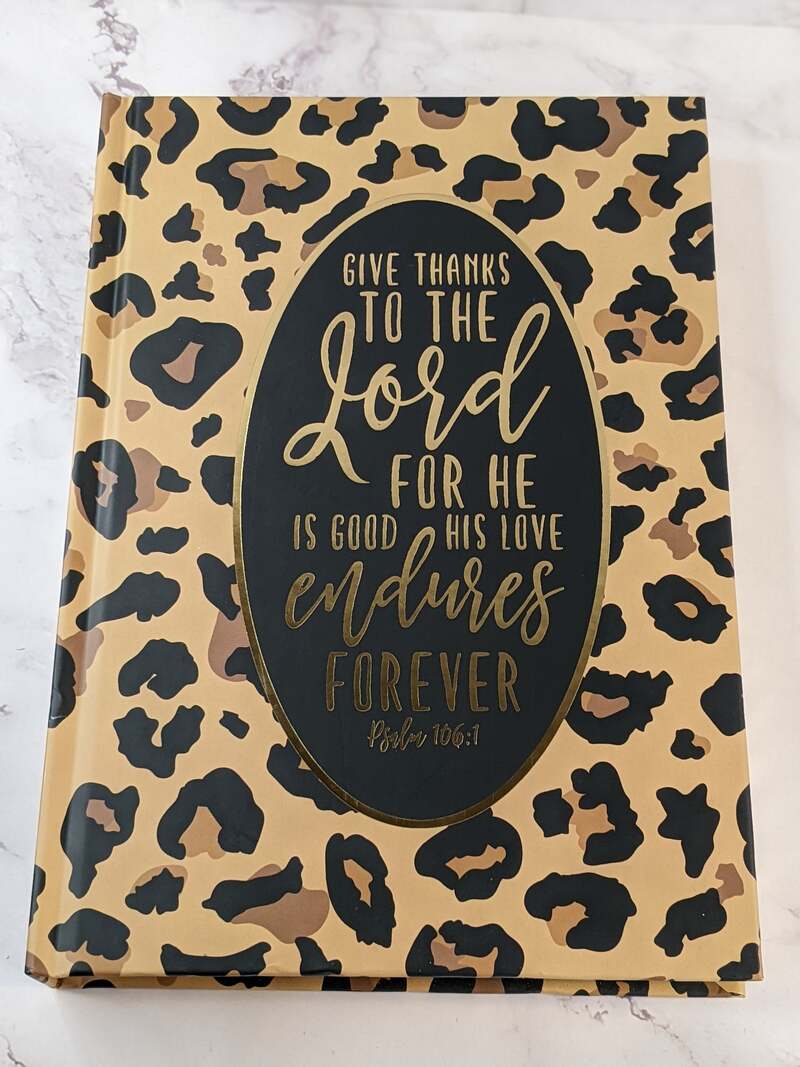 GIVE THANKS
TO THE
Lord
FOR HE
IS GOOD HIS LOVE
endures
FOREVER
Psalm 106:1